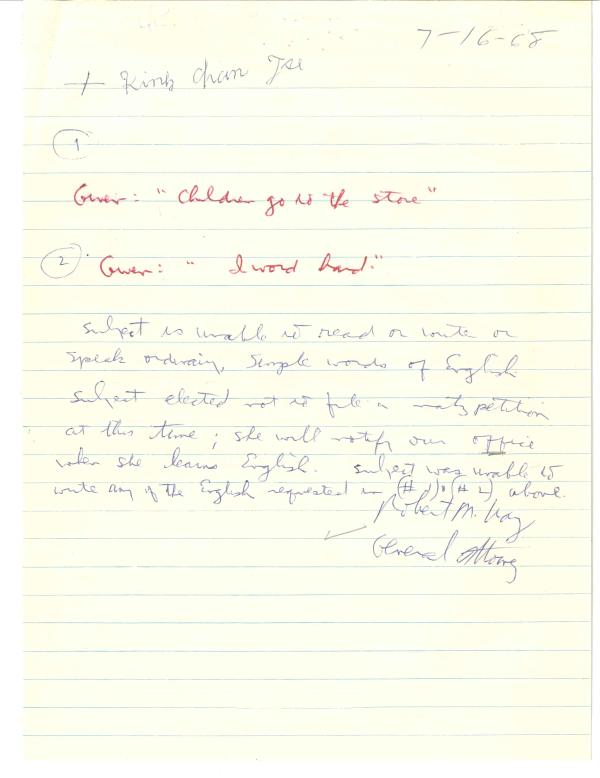 7-16-68
+ King Chan Tse
1
Given: "Children go to the store"
2. Given: " I word hard."
Subject is unable to read or write or
speak ordinary, simple words of English
Subject elected not to file a natz petition
at this time; she will notify our office
when she learns English. Subject was unable to
write any of the English requested in (#1) & (#2) above.
Robert M.
General Attorney